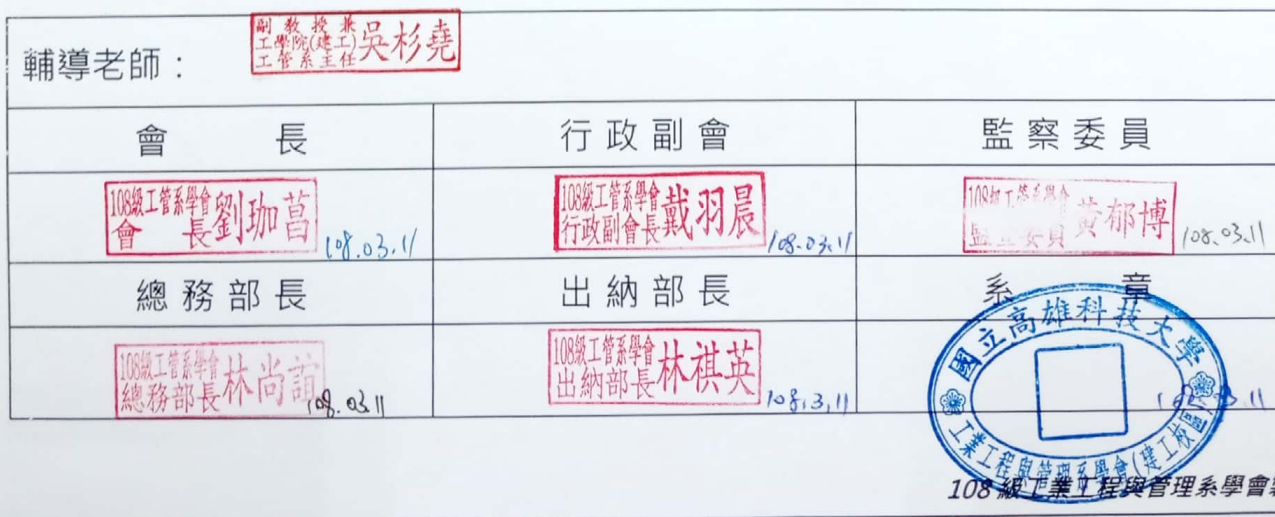 輔導老師：
副教授兼
工學院(建工)
工管系主任 吳杉堯
會長 行政副會 監察委員
108級工管系學會
會長 劉珈菖 108.03.11
108級工管系學會
行政副會長 戴羽晨 108.03.11
108級工管系學會
監察委員 黃郁博 108.03.11
總務部長 出納部長 系章
108級工管系學會
總務部長 林尚誼 108.03.11
108級工管系學會
出納部長 林祺英 108.3.11
國立高雄科技大學
工業工程與管理系學會(建工校區)
108級工業工程與管理系學會